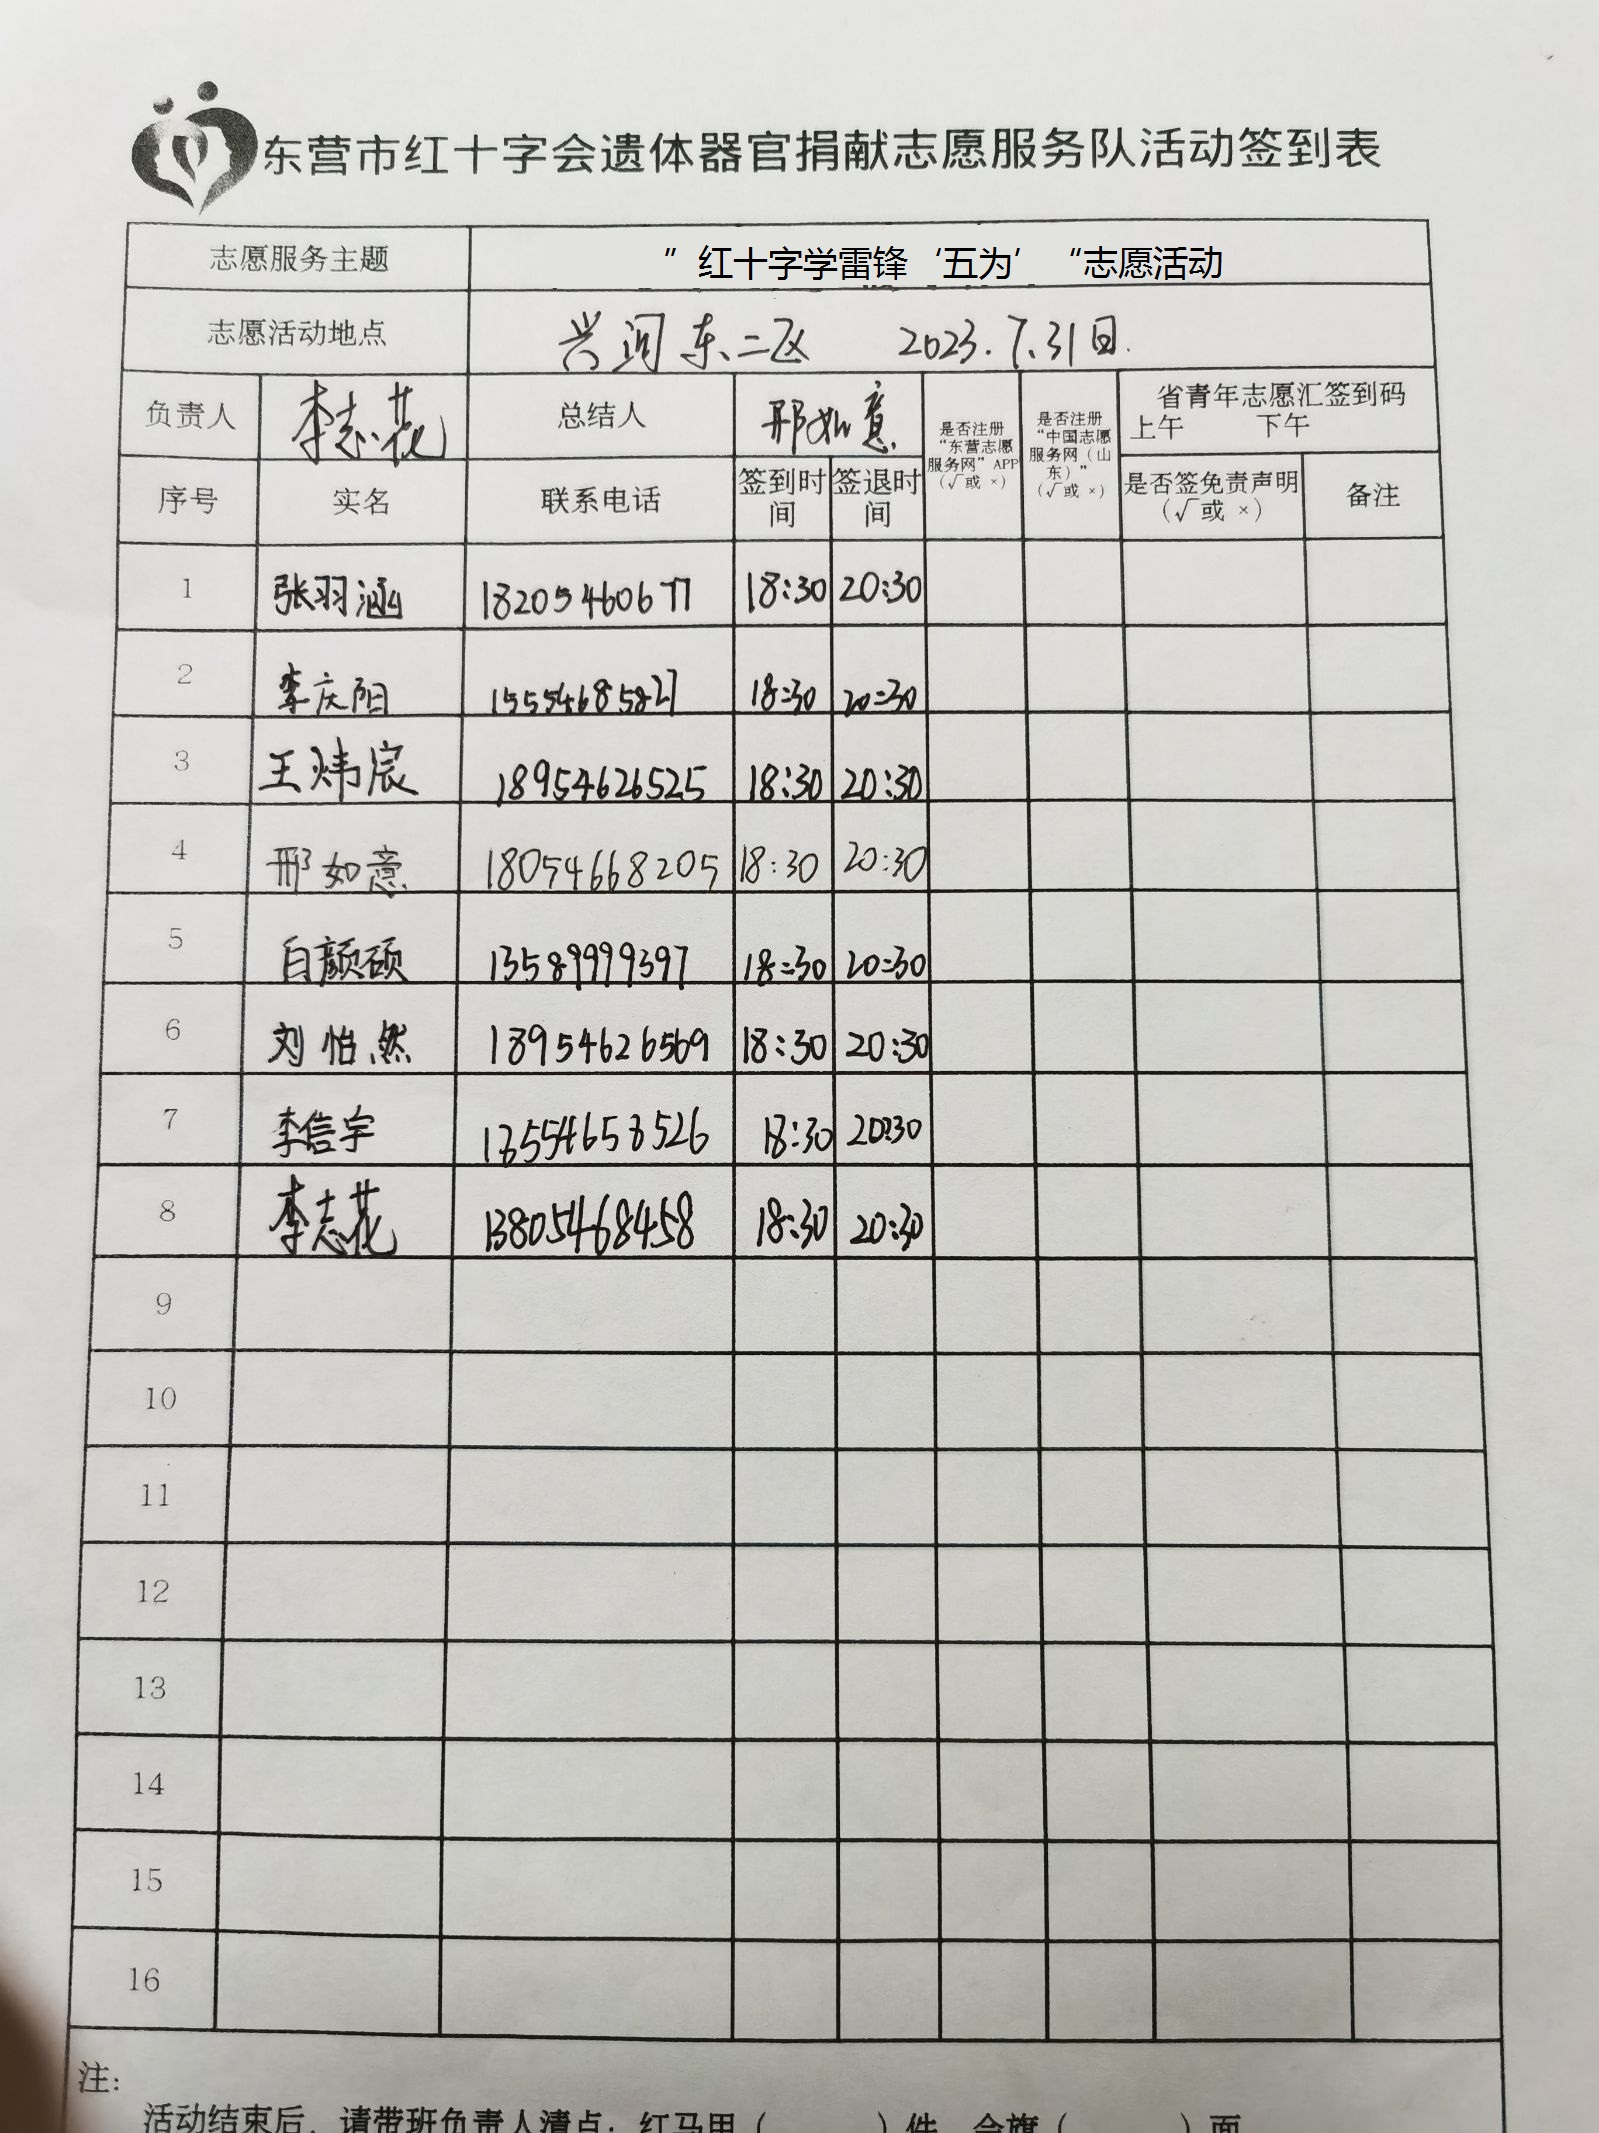 东营市红十字会遗体器官捐献志愿服务队活动签到表
志愿服务主题 ”红十字学雷锋‘五为’“志愿活动
志愿活动地点 兴河东二区 2023.7.31日.
负责人 李志花 总结人 邢如意 是否注册“东营志愿服务网”APP（√或 ×） 是否注册“中国志愿服务网（山东）”（√或 ×） 省青年志愿汇签到码
上午 下午
序号 实名 联系电话 签到时间 签退时间 是否签免责声明（√或 ×） 备注
1 张羽涵 18205460677 18:30 20:30
2 李庆阳 15554685827 18:30 20:30
3 王炜宸 18954626525 18:30 20:30
4 邢如意 18054668205 18:30 20:30
5 白颜硕 13589999397 18:30 20:30
6 刘怡然 18954626569 18:30 20:30
7 李信宇 13554658526 18:30 20:30
8 李志花 13805468458 18:30 20:30
9
10
11
12
13
14
15
16
注：
活动结束后，请带班负责人清点：红马甲（ ）件，会旗（ ）面